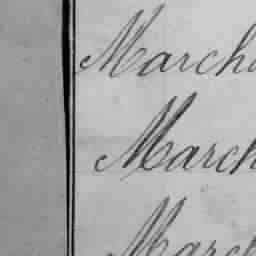 March
March
March